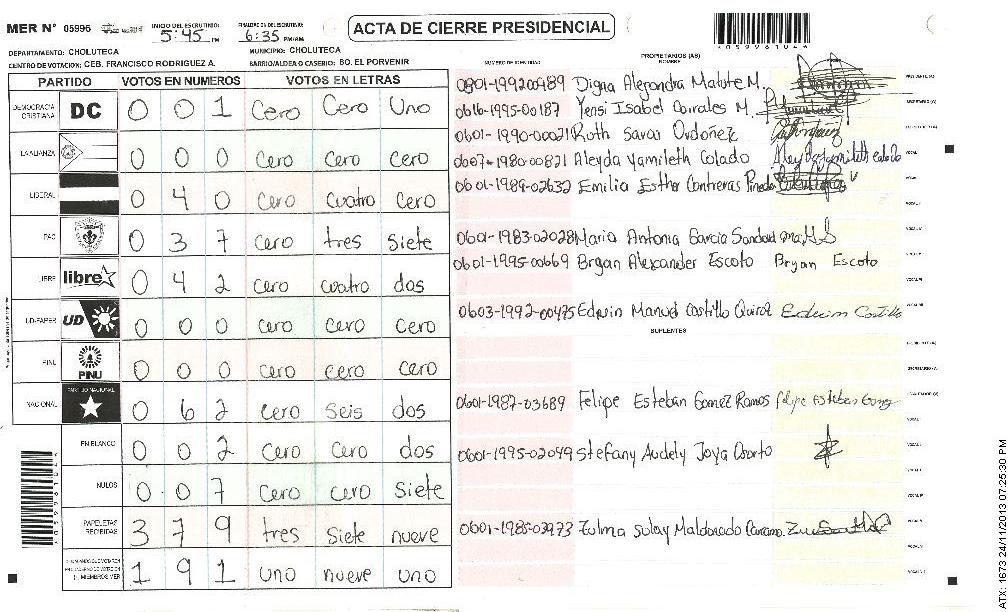 MER N° 05996
INICIO DEL ESCRUTINIO: 5:45 PM
FINALIZACION DEL ESCRUTINIO: 6:35 PM/AM
ACTA DE CIERRE PRESIDENCIAL
059961044
DEPARTAMENTO: CHOLUTECA
MUNICIPIO: CHOLUTECA
CENTRO DE VOTACION: CEB. FRANCISCO RODRIGUEZ A.
BARRIO/ALDEA O CASERIO: BO. EL PORVENIR
PARTIDO VOTOS EN NUMEROS VOTOS EN LETRAS
DEMOCRACIA CRISTIANA DC 0 0 1 Cero Cero Uno
LA ALIANZA 0 0 0 cero cero cero
LIBERAL 0 4 0 cero cuatro cero
PAC 0 3 7 cero tres siete
LIBRE libre 0 4 2 cero cuatro dos
UD-FAPER UD 0 0 0 cero cero cero
PINU PINU 0 0 0 cero cero cero
NACIONAL PARTIDO NACIONAL 0 6 2 cero seis dos
EN BLANCO 0 0 2 cero cero dos
NULOS 0 0 7 cero cero siete
PAPELETAS RECIBIDAS 3 7 9 tres siete nueve
1 9 1 uno nueve uno
NUMERO DE IDENTIDAD
PROPIETARIOS (AS)
NOMBRE
0801-199200489 Digna Alejandra Matute M.
0616-1995-00187 Yensi Isabel Corrales M.
0601-1990-00021 Ruth Saraí Ordoñez
0607-1980-00821 Aleyda Yamileth Colado Aleyda Yamileth Colado
0601-1989-02632 Emilia Esther Contreras Pineda
0601-1983-02028 Maria Antonia Garcia Sandoval
0601-1995-00669 Bryan Alexander Escoto Bryan Escoto
0603-1992-00475 Edwin Manuel Castillo Quiroz Edwin Castillo
SUPLENTES
0601-1987-03689 Felipe Esteban Gomez Ramos Felipe Esteban Gomez
0601-1995-02049 Stefany Audely Joya Osorto
0601-1985-03973 Zulma Suloy Maldonado
ATX: 1673 24/11/2013 07:25:30 PM